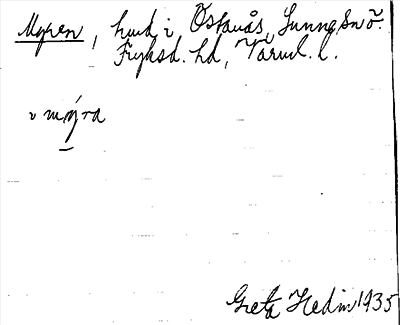 Myren, hmd i Östanås, Sunne sn ö.
Fryksd. hd, Värml. l.
myra
Greta Hedin 1935